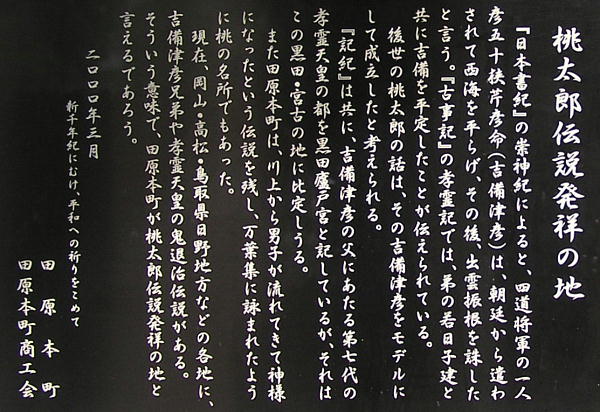 桃太郎伝説発祥の地
『日本書紀』の崇神紀によると、四道将軍の一人
彦五十狭芹彦命(吉備津彦)は、朝廷から遣わ
されて西海を平らげ、その後、出雲振根を誅した
と言う。『古事記』の孝霊記では、弟の若日子建と
共に吉備を平定したことが伝えられている。
後世の桃太郎の話は、その吉備津彦をモデルに
して成立したと考えられる。
『記紀』は共に、吉備津彦の父にあたる第七代の
孝霊天皇の都を黒田廬戸宮と記しているが、それは
この黒田・宮古の地に比定しうる。
また田原本町は、川上から男子が流れてきて神様
になったという伝説を残し、万葉集に詠まれたよう
に桃の名所でもあった。
現在、岡山・高松・鳥取県日野地方などの各地に、
吉備津彦兄弟や孝霊天皇の鬼退治伝説がある。
そういう意味で、田原本町が桃太郎伝説発祥の地と
言えるであろう。
二〇〇〇年三月
新千年紀にむけ、平和への祈りをこめて
田原本町
田原本町商工会